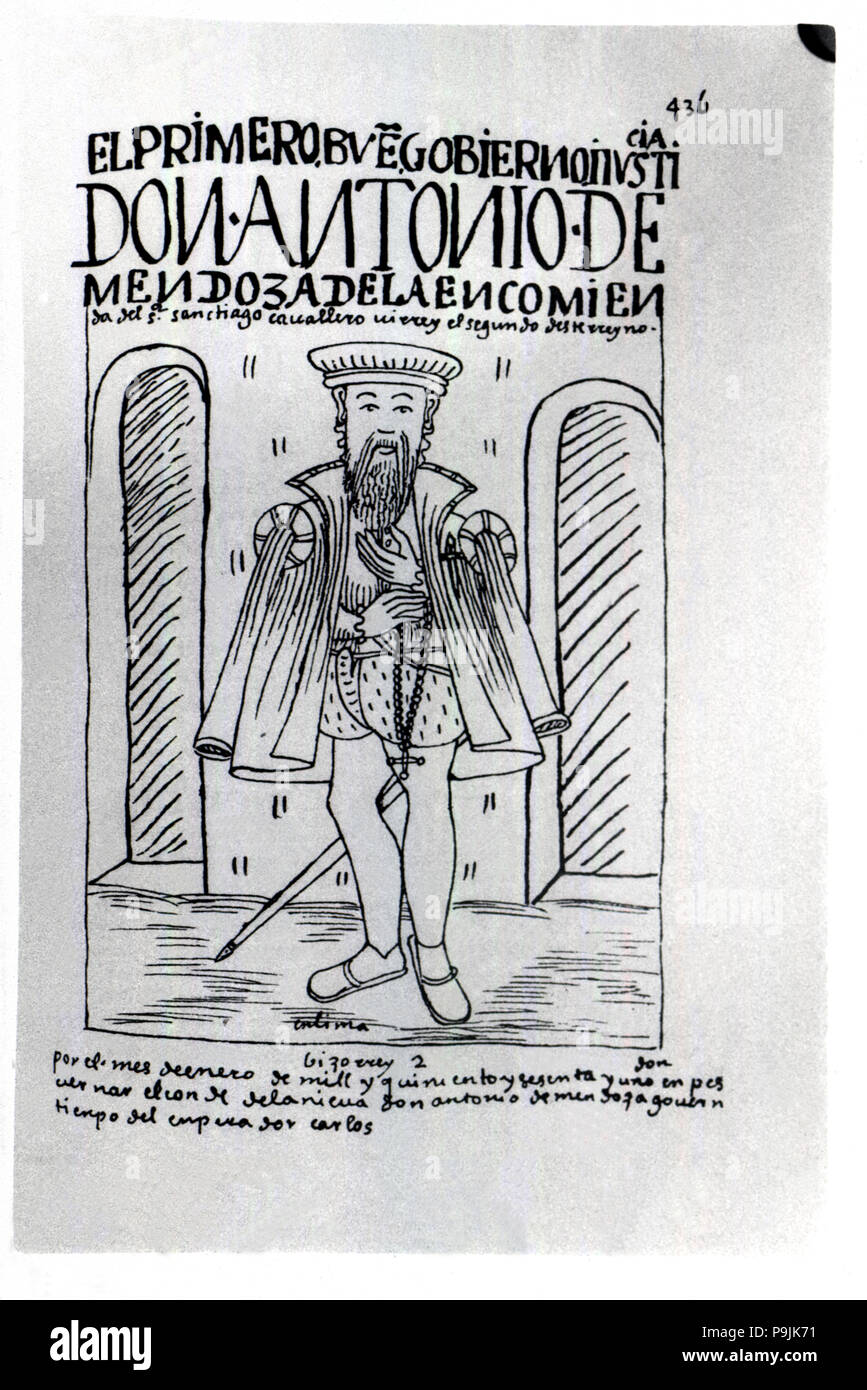 436
EL PRIMERO.BVĒ.GOBIERNO.IIVSTI
CIA.
DON·ANTONIO·DE
MENDOZA DE LA ENCOMIEN
da del s.r sanctiago cavallero virrey el segundo deste rreyno·
en lima
bizorrey 2
por el mes de enero de mill y quiniento y sesenta y uno enpes
don
uernar el conde de la nieua don antonio de mendoza gouern
tienpo del enperador carlos
alamy
Image ID: P9JK71
www.alamy.com